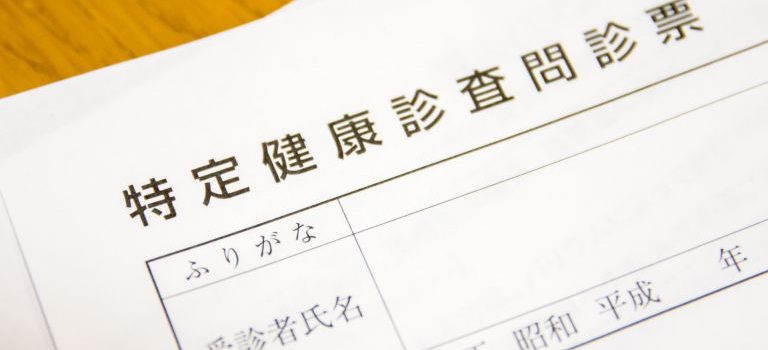 特定健康診査問診票
ふりがな
受診者氏名
昭和 平成 年